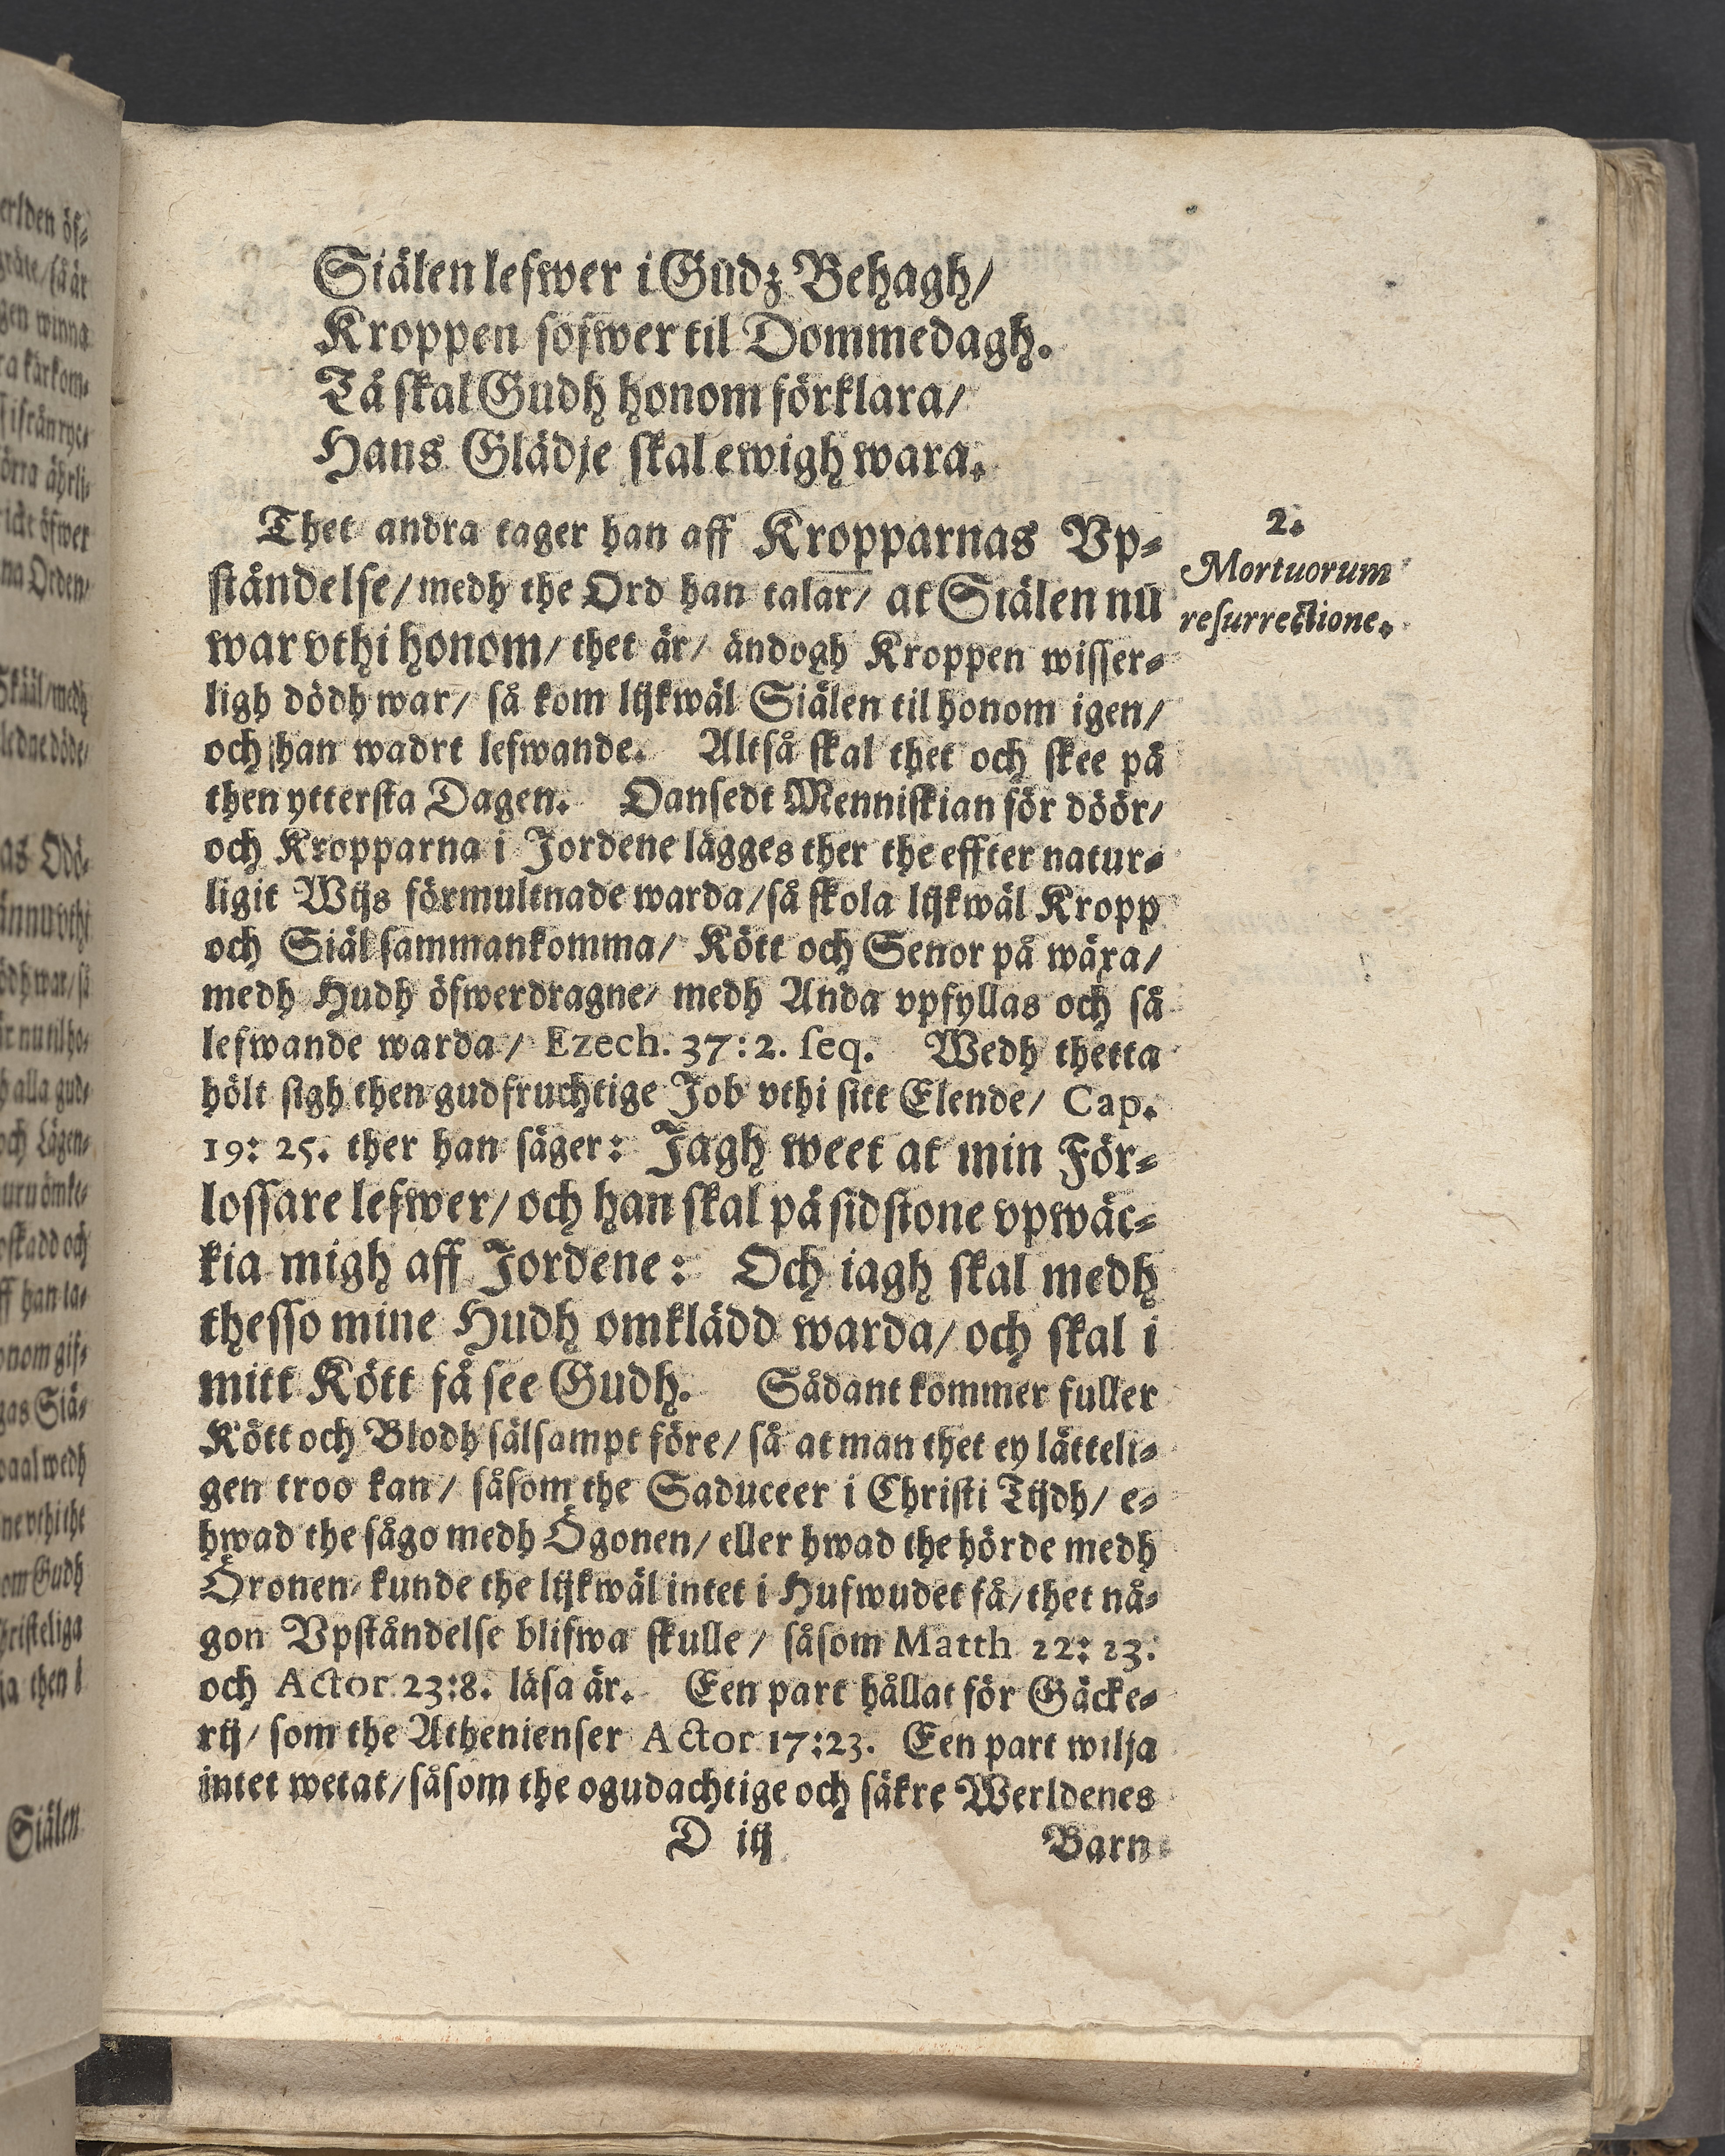 Siälen lefwer i Gudz Behagh/
Kroppen sofwer til Dommedagh.
Tå skal Gudh honom förklara/
Hans Glädje skal ewigh wara.
Thet andra tager han aff Kropparnas Vp-
ståndelse/ medh the Ord han talar/ at Siälen nu
war vthi honom/ thet är/ ändogh Kroppen wisser-
ligh dödh war/ så kom lijkwäl Siälen til honom igen/
och han wadrt lefwande. Altså skal thet och skee på
then yttersta Dagen. Oansedt Menniskian för döör/
och Kropparna i Jordene lägges ther the effter natur-
ligit Wijs förmultnade warda/ så skola lijkwäl Kropp
och Siäl sammankomma/ Kött och Senor på wäxa/
medh Hudh öfwerdragne/ medh Anda vpfyllas och så
lefwande warda/ Ezech. 37:2. seq. Wedh thetta
hölt sigh then gudfruchtige Job vthi sitt Elende/ Cap.
19: 25. ther han säger: Jagh weet at min För-
lossare lefwer/ och han skal på sidstone vpwäc-
kia migh aff Jordene: Och iagh skal medh
thesso mine Hudh omklädd warda/ och skal i
mitt Kött få see Gudh. Sådant kommer fuller
Kött och Blodh sälsampt före/ så at man thet ey lätteli-
gen troo kan/ såsom the Saduceer i Christi Tijdh/ e-
hwad the sågo medh Ögonen/ eller hwad the hörde medh
Öronen/ kunde the lijkwäl intet i Hufwudet få/ thet nå-
gon Vpståndelse blifwa skulle/ såsom Matth 22: 23.
och Actor 23:8. läsa är. Een part hållat för Gäcke-
rij/ som the Athenienser Actor 17:23. Een part wilja
intet wetat/ såsom the ogudachtige och säkre Werldenes
D iij
Barn
2.
Mortuorum
resurrectione.
Siälen